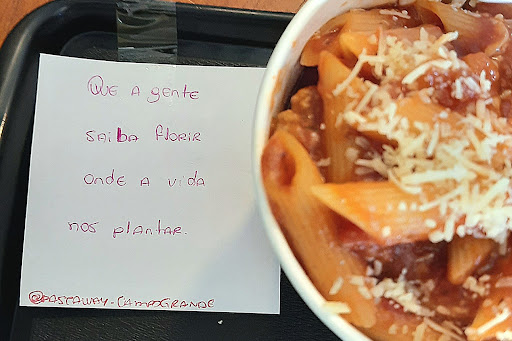 Que a gente
saiba florir
onde a vida
nos plantar.
@pastaway_campogrande